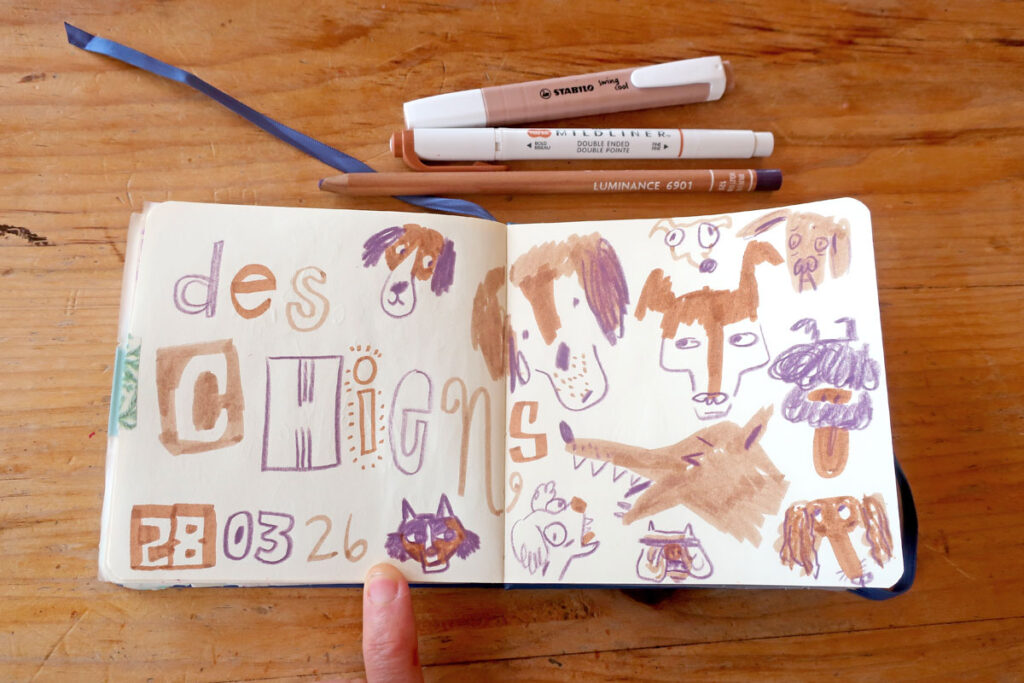 STABILO swing cool
MILDLINER
BOLD DOUBLE ENDED FINE
BISEAU DOUBLE POINTE FINE
LUMINANCE 6901
des
CHiens,
28 03 26